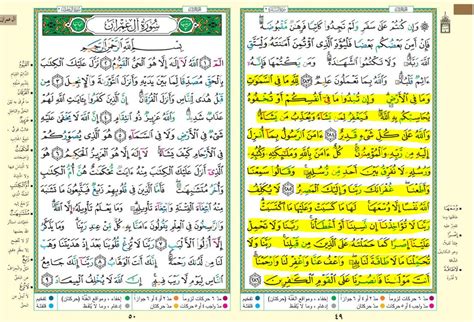 وَإِن كُنتُمْ عَلَىٰ سَفَرٍ وَلَمْ تَجِدُوا۟ كَاتِبًا فَرِهَٰنٌ مَّقْبُوضَةٌ
فَإِنْ أَمِنَ بَعْضُكُم بَعْضًا فَلْيُؤَدِّ ٱلَّذِى ٱؤْتُمِنَ أَمَٰنَتَهُۥ
وَلْيَتَّقِ ٱللَّهَ رَبَّهُۥ وَلَا تَكْتُمُوا۟ ٱلشَّهَٰدَةَ وَمَن يَكْتُمْهَا فَإِنَّهُۥٓ
ءَاثِمٌ قَلْبُهُۥ وَٱللَّهُ بِمَا تَعْمَلُونَ عَلِيمٌ ٢٨٣ لِّلَّهِ مَا فِى ٱلسَّمَٰوَٰتِ
وَمَا فِى ٱلْأَرْضِ وَإِن تُبْدُوا۟ مَا فِىٓ أَنفُسِكُمْ أَوْ تُخْفُوهُ
يُحَاسِبْكُم بِهِ ٱللَّهُ فَيَغْفِرُ لِمَن يَشَآءُ وَيُعَذِّبُ مَن يَشَآءُ
وَٱللَّهُ عَلَىٰ كُلِّ شَىْءٍ قَدِيرٌ ٢٨٤ ءَامَنَ ٱلرَّسُولُ بِمَآ أُنزِلَ
إِلَيْهِ مِن رَّبِّهِۦ وَٱلْمُؤْمِنُونَ كُلٌّ ءَامَنَ بِٱللَّهِ وَمَلَٰٓئِكَتِهِۦ
وَكُتُبِهِۦ وَرُسُلِهِۦ لَا نُفَرِّقُ بَيْنَ أَحَدٍ مِّن رُّسُلِهِۦ وَقَالُوا۟
سَمِعْنَا وَأَطَعْنَا غُفْرَانَكَ رَبَّنَا وَإِلَيْكَ ٱلْمَصِيرُ ٢٨٥
لَا يُكَلِّفُ ٱللَّهُ نَفْسًا إِلَّا وُسْعَهَا لَهَا مَا كَسَبَتْ وَعَلَيْهَا
مَا ٱكْتَسَبَتْ رَبَّنَا لَا تُؤَاخِذْنَآ إِن نَّسِينَآ أَوْ أَخْطَأْنَا
رَبَّنَا وَلَا تَحْمِلْ عَلَيْنَآ إِصْرًا كَمَا حَمَلْتَهُۥ عَلَى ٱلَّذِينَ
مِن قَبْلِنَا رَبَّنَا وَلَا تُحَمِّلْنَا مَا لَا طَاقَةَ لَنَا بِهِۦ وَٱعْفُ عَنَّا وَٱغْفِرْ لَنَا وَٱرْحَمْنَآ
أَنتَ مَوْلَىٰنَا فَٱنصُرْنَا عَلَى ٱلْقَوْمِ ٱلْكَٰفِرِينَ ٢٨٦
٤٩
سُورَةُ آلِ عِمْرَانَ
بِسْمِ ٱللَّهِ ٱلرَّحْمَٰنِ ٱلرَّحِيمِ
الٓمٓ ١ ٱللَّهُ لَآ إِلَٰهَ إِلَّا هُوَ ٱلْحَىُّ ٱلْقَيُّومُ ٢ نَزَّلَ عَلَيْكَ ٱلْكِتَٰبَ
بِٱلْحَقِّ مُصَدِّقًا لِّمَا بَيْنَ يَدَيْهِ وَأَنزَلَ ٱلتَّوْرَىٰةَ وَٱلْإِنجِيلَ ٣
مِن قَبْلُ هُدًى لِّلنَّاسِ وَأَنزَلَ ٱلْفُرْقَانَ إِنَّ ٱلَّذِينَ كَفَرُوا۟ بِـَٔايَٰتِ
ٱللَّهِ لَهُمْ عَذَابٌ شَدِيدٌ وَٱللَّهُ عَزِيزٌ ذُو ٱنتِقَامٍ ٤ إِنَّ ٱللَّهَ لَا يَخْفَىٰ
عَلَيْهِ شَىْءٌ فِى ٱلْأَرْضِ وَلَا فِى ٱلسَّمَآءِ ٥ هُوَ ٱلَّذِى يُصَوِّرُكُمْ
فِى ٱلْأَرْحَامِ كَيْفَ يَشَآءُ لَآ إِلَٰهَ إِلَّا هُوَ ٱلْعَزِيزُ ٱلْحَكِيمُ ٦ هُوَ ٱلَّذِىٓ
أَنزَلَ عَلَيْكَ ٱلْكِتَٰبَ مِنْهُ ءَايَٰتٌ مُّحْكَمَٰتٌ هُنَّ أُمُّ ٱلْكِتَٰبِ
وَأُخَرُ مُتَشَٰبِهَٰتٌ فَأَمَّا ٱلَّذِينَ فِى قُلُوبِهِمْ زَيْغٌ فَيَتَّبِعُونَ مَا تَشَٰبَهَ
مِنْهُ ٱبْتِغَآءَ ٱلْفِتْنَةِ وَٱبْتِغَآءَ تَأْوِيلِهِۦ وَمَا يَعْلَمُ تَأْوِيلَهُۥٓ إِلَّا ٱللَّهُ
وَٱلرَّٰسِخُونَ فِى ٱلْعِلْمِ يَقُولُونَ ءَامَنَّا بِهِۦ كُلٌّ مِّنْ عِندِ رَبِّنَا وَمَا يَذَّكَّرُ
إِلَّآ أُو۟لُوا۟ ٱلْأَلْبَٰبِ ٧ رَبَّنَا لَا تُزِغْ قُلُوبَنَا بَعْدَ إِذْ هَدَيْتَنَا وَهَبْ
لَنَا مِن لَّدُنكَ رَحْمَةً إِنَّكَ أَنتَ ٱلْوَهَّابُ ٨ رَبَّنَآ إِنَّكَ جَامِعُ
ٱلنَّاسِ لِيَوْمٍ لَّا رَيْبَ فِيهِ إِنَّ ٱللَّهَ لَا يُخْلِفُ ٱلْمِيعَادَ ٩
٥٠